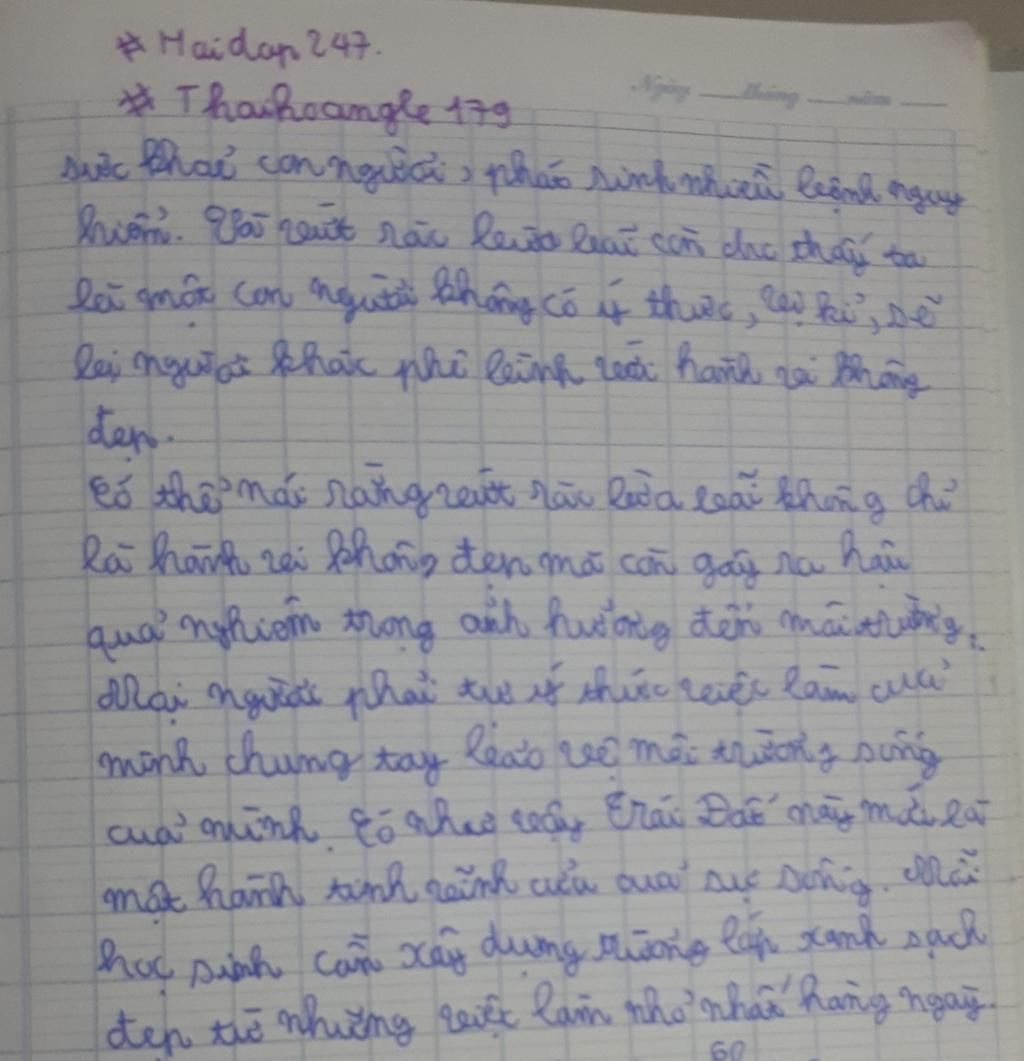 # Hoidap247.
# Thaihoangle179
Ngày tháng năm
sức khoẻ con người, phát sinh nhiều bệnh nguy
hiểm. Vứt rác bừa bãi còn cho thấy ta
là một con người không có ý thức, vị kỉ, sẽ
bị người khác phê bình với hành vi không
đẹp.
Có thể nói rằng vứt rác bừa bãi không chỉ
là hành vi không đẹp mà còn gây ra hậu
quả nghiêm trọng ảnh hưởng đến môi trường.
Mọi người phải tự ý thức việc làm của
mình chung tay bảo vệ môi trường sống
của mình. Có như vậy Trái Đất này mới là
một hành tinh xanh của sự sống. Mỗi
học sinh cần xây dựng trường lớp xanh sạch
đẹp từ những việc làm nhỏ nhất hàng ngày.
60